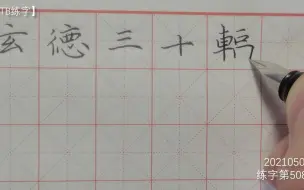 TB练字】
玄德三十輻
2021050
练字第508